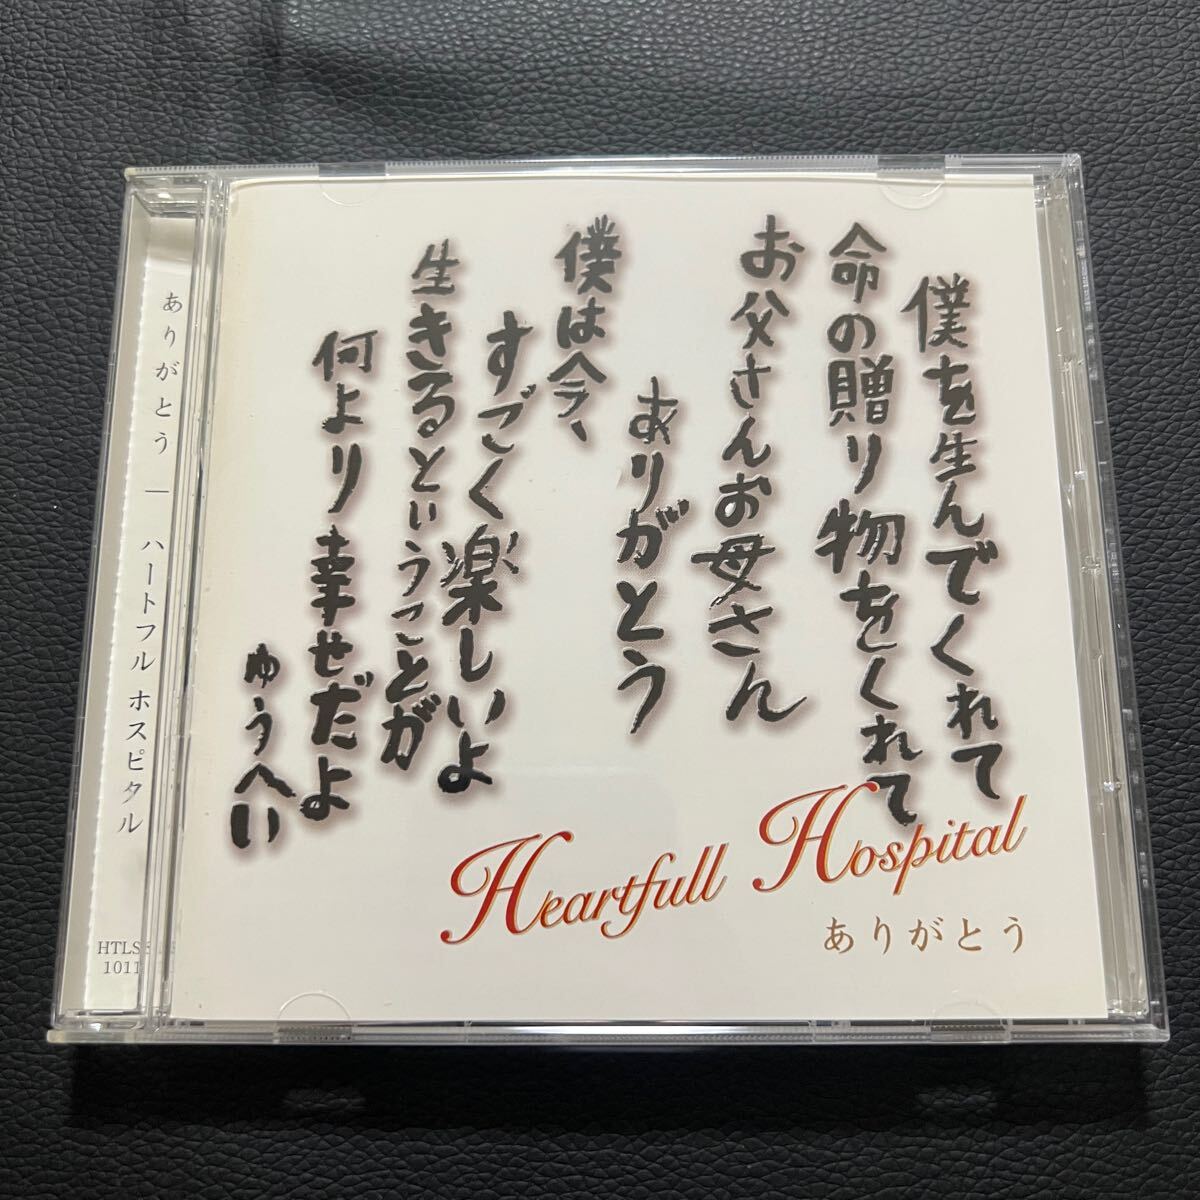 僕を生んでくれて
命の贈り物をくれて
お父さんお母さん
ありがとう
僕は今、
すごく楽しいよ
生きるということが
何より幸せだよ
ゆうへい
Heartfull Hospital
ありがとう
ありがとう | ハートフル ホスピタル
1011